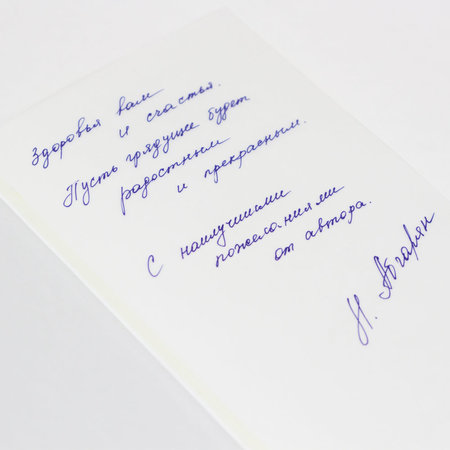 Здоровья вам
и счастья.
Пусть грядущее будет
радостным
и прекрасным.
С наилучшими
пожеланиями
от автора.
Н. Абгарян